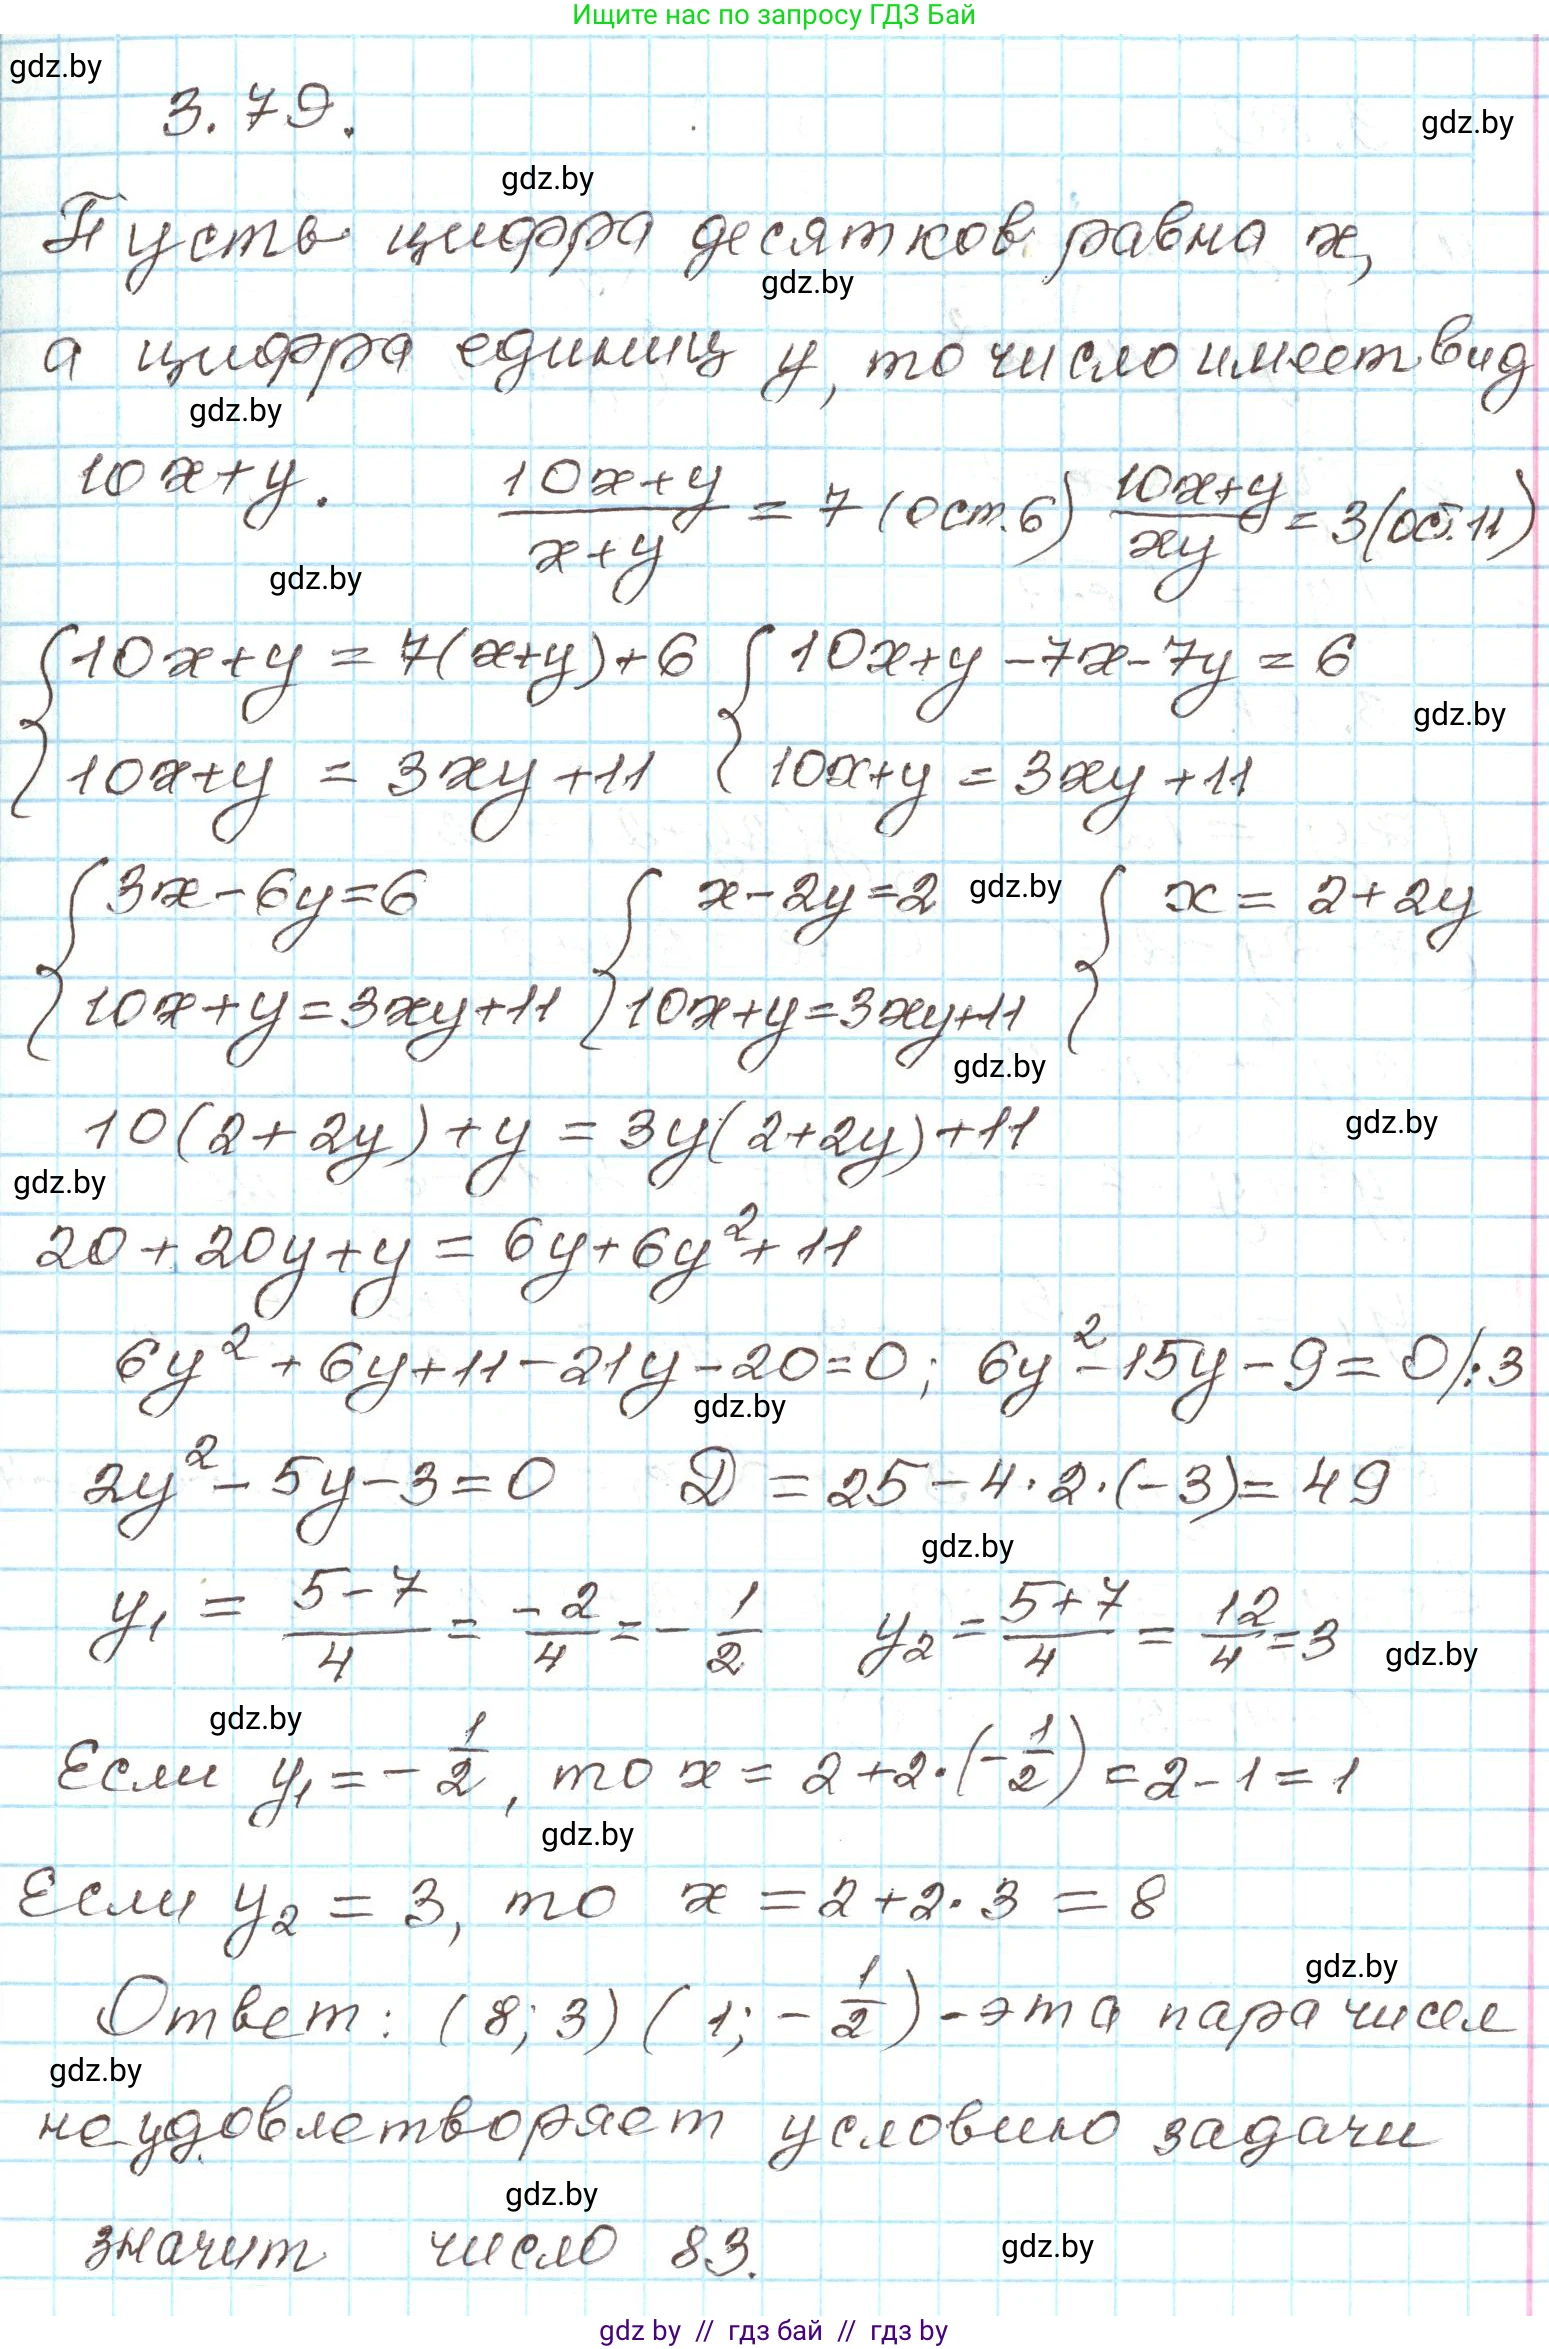 Ищите нас по запросу ГДЗ Бай
gdz.by
3.79.
gdz.by
gdz.by
Пусть цифра десятков равна x,
gdz.by
а цифра единиц y, то число имеет вид
gdz.by
10x+y. (10x+y)/(x+y) = 7 (ост.6) (10x+y)/(xy) = 3(ос.11)
gdz.by
{10x+y = 7(x+y)+6 {10x+y-7x-7y=6
gdz.by
{10x+y = 3xy+11 {10x+y=3xy+11
{3x-6y=6 {x-2y=2 gdz.by {x=2+2y
{10x+y=3xy+11 {10x+y=3xy+11 {
gdz.by
10(2+2y)+y=3y(2+2y)+11
gdz.by
gdz.by
20+20y+y=6y+6y²+11
6y²+6y+11-21y-20=0; 6y²-15y-9=0/:3
gdz.by
2y²-5y-3=0 D=25-4·2·(-3)=49
gdz.by
y₁ = (5-7)/4 = -2/4 = -1/2 y₂ = (5+7)/4 = 12/4 = 3
gdz.by
gdz.by
Если y₁=-1/2, то x=2+2·(-1/2)=2-1=1
gdz.by
Если y₂=3, то x=2+2·3=8
gdz.by
Ответ: (8;3) (1;-1/2) - эта пара чисел
gdz.by
не удовлетворяет условию задачи
gdz.by
значит число 83.
gdz.by
gdz.by // гдз бай // гдз by